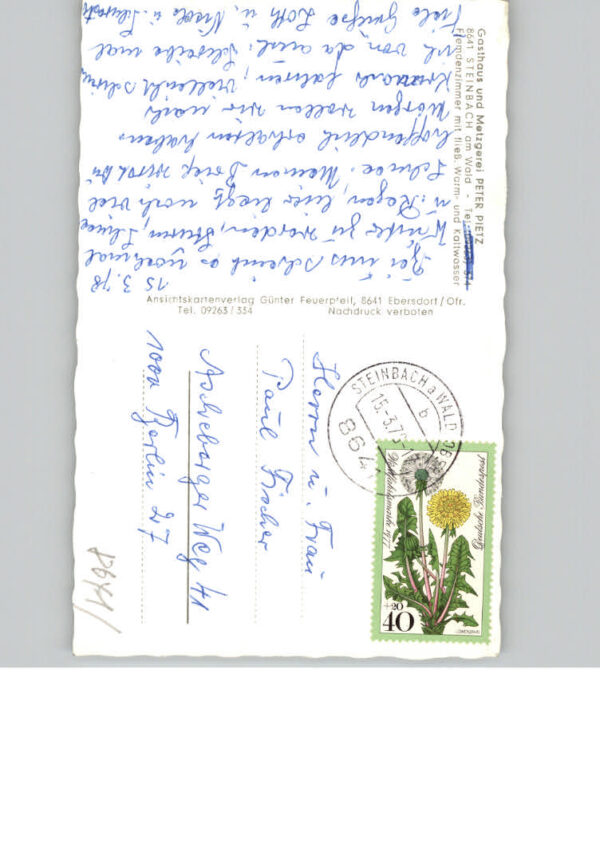 Gasthaus und Metzgerei PETER PIETZ
8641 STEINBACH am Wald - Tel.
Fremdenzimmer mit fließ. Warm- und Kaltwasser
15.3.78
Bei uns scheint es nochmal
Winter zu werden, Sturm, Schnee
u. Regen, hier liegt noch viel
Schnee. Meinen Brief
hoffendlich erhalten haben.
Morgen wollen wir nach
Kronach fahren, vielleicht
ich von da aus. Schreibe mal
Viele Grüße
Ansichtskartenverlag Günter Feuerpfeil, 8641 Ebersdorf/Ofr.
Tel. 09263/334 Nachdruck verboten
STEINBACH a WALD
15.-3.78
b
8641
Deutsche Bundespost
Wohlfahrtsmarke 1977
+20
40
Herrn u. Frau
Paul Fischer
Ascheberger Weg 41
1000 Berlin 27